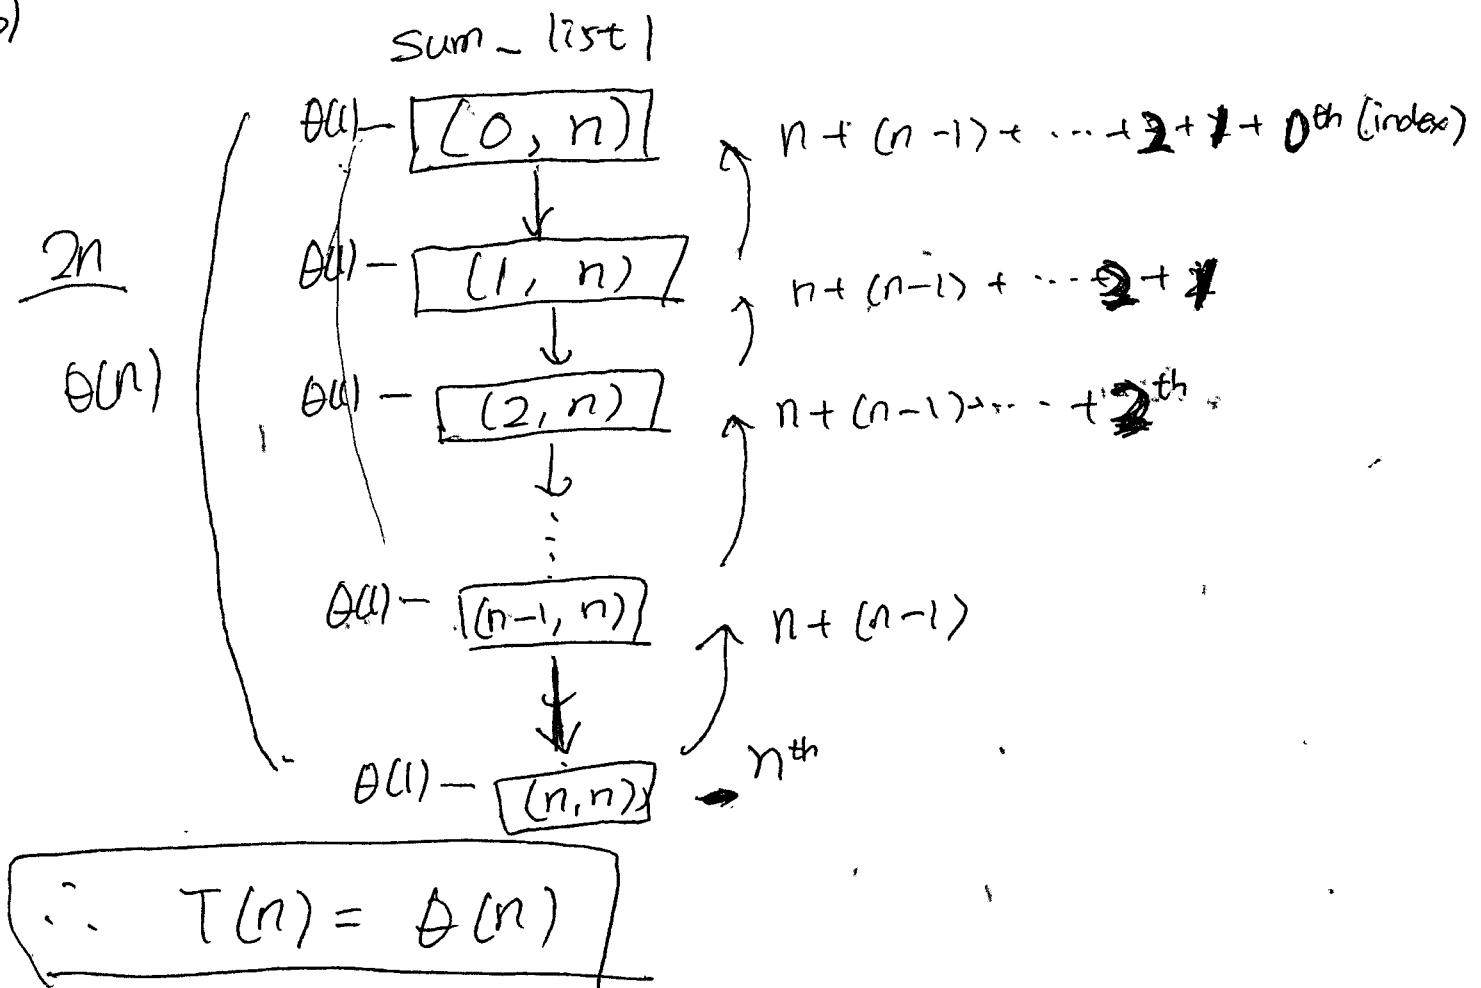 b)
sum_list1
θ(1) - (0, n) n + (n-1) + ... + 2 + 1 + 0th (index)
θ(1) - (1, n) n + (n-1) + ... 2 + 1
2n
θ(n)
θ(1) - (2, n) n + (n-1) + ... + 2th
⋮
θ(1) - (n-1, n) n + (n-1)
θ(1) - (n, n) - nth
∴ T(n) = θ(n)